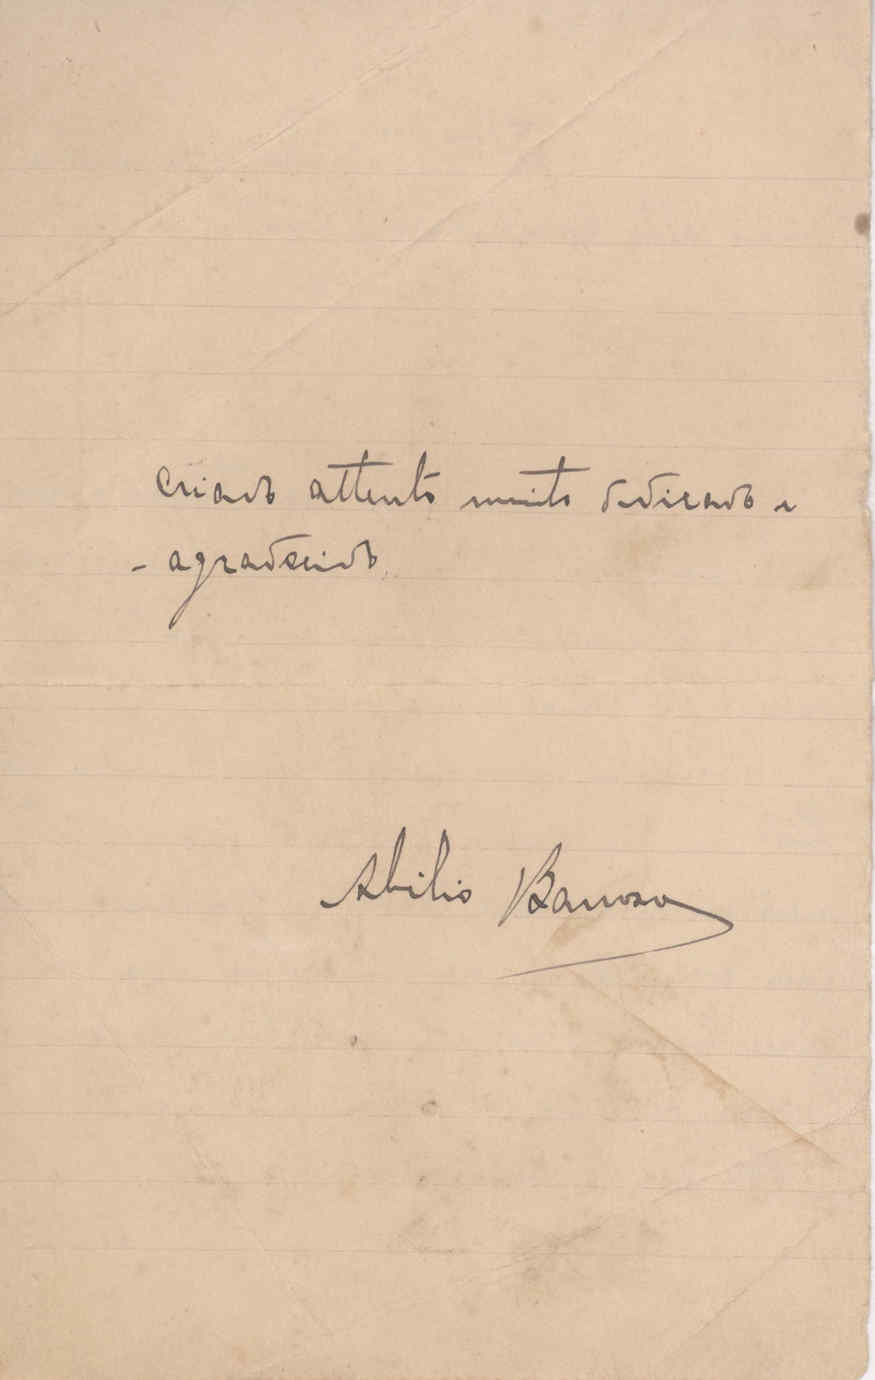 criado attento muito dedicado e
- agradecido
Abilio Barroso